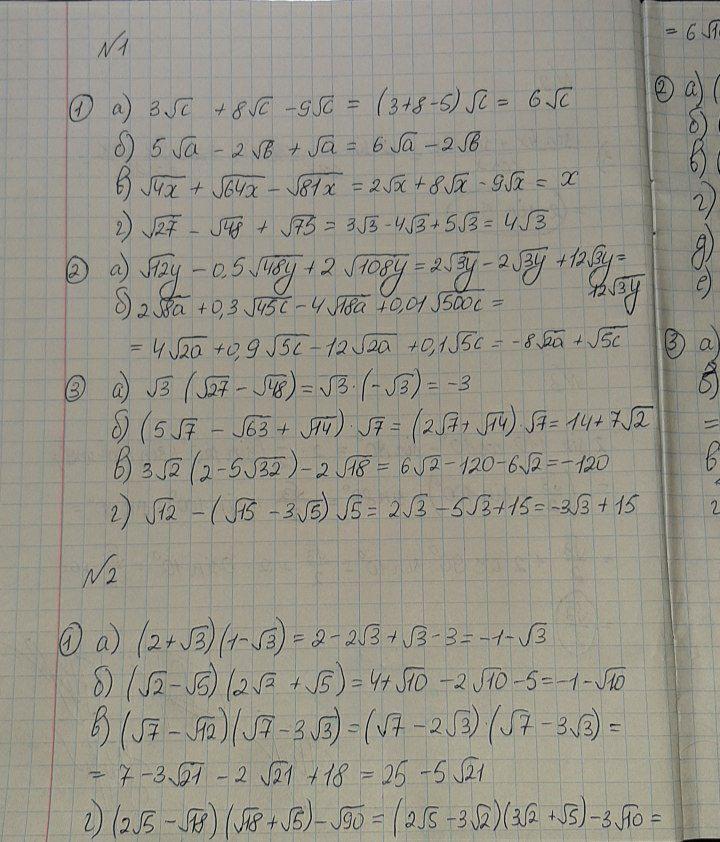 N1
① а) 3√c + 8√c - 9√c = (3+8-5)√c = 6√c
б) 5√a - 2√b + √a = 6√a - 2√b
в) √4x + √64x - √81x = 2√x + 8√x - 9√x = x
г) √27 - √48 + √75 = 3√3 - 4√3 + 5√3 = 4√3
② а) √12y - 0,5√48y + 2√108y = 2√3y - 2√3y + 12√3y =
12√3y
б) 2√8a + 0,3√45c - 4√18a + 0,01√500c =
= 4√2a + 0,9√5c - 12√2a + 0,1√5c = -8√2a + √5c
③ а) √3 (√27 - √48) = √3·(-√3) = -3
б) (5√7 - √63 + √14)·√7 = (2√7 + √14)·√7 = 14 + 7√2
в) 3√2 (2 - 5√32) - 2√18 = 6√2 - 120 - 6√2 = -120
г) √12 - (√15 - 3√5) √5 = 2√3 - 5√3 + 15 = -3√3 + 15
N2
① а) (2+√3)(1-√3) = 2 - 2√3 + √3 - 3 = -1 - √3
б) (√2 - √5)(2√2 + √5) = 4 + √10 - 2√10 - 5 = -1 - √10
в) (√7 - √12)(√7 - 3√3) = (√7 - 2√3)·(√7 - 3√3) =
= 7 - 3√21 - 2√21 + 18 = 25 - 5√21
г) (2√5 - √18)(√18 + √5) - √90 = (2√5 - 3√2)(3√2 + √5) - 3√10 =
② а) (
б)
в)
г)
д)
е)
③ а)
б)
=
в
г